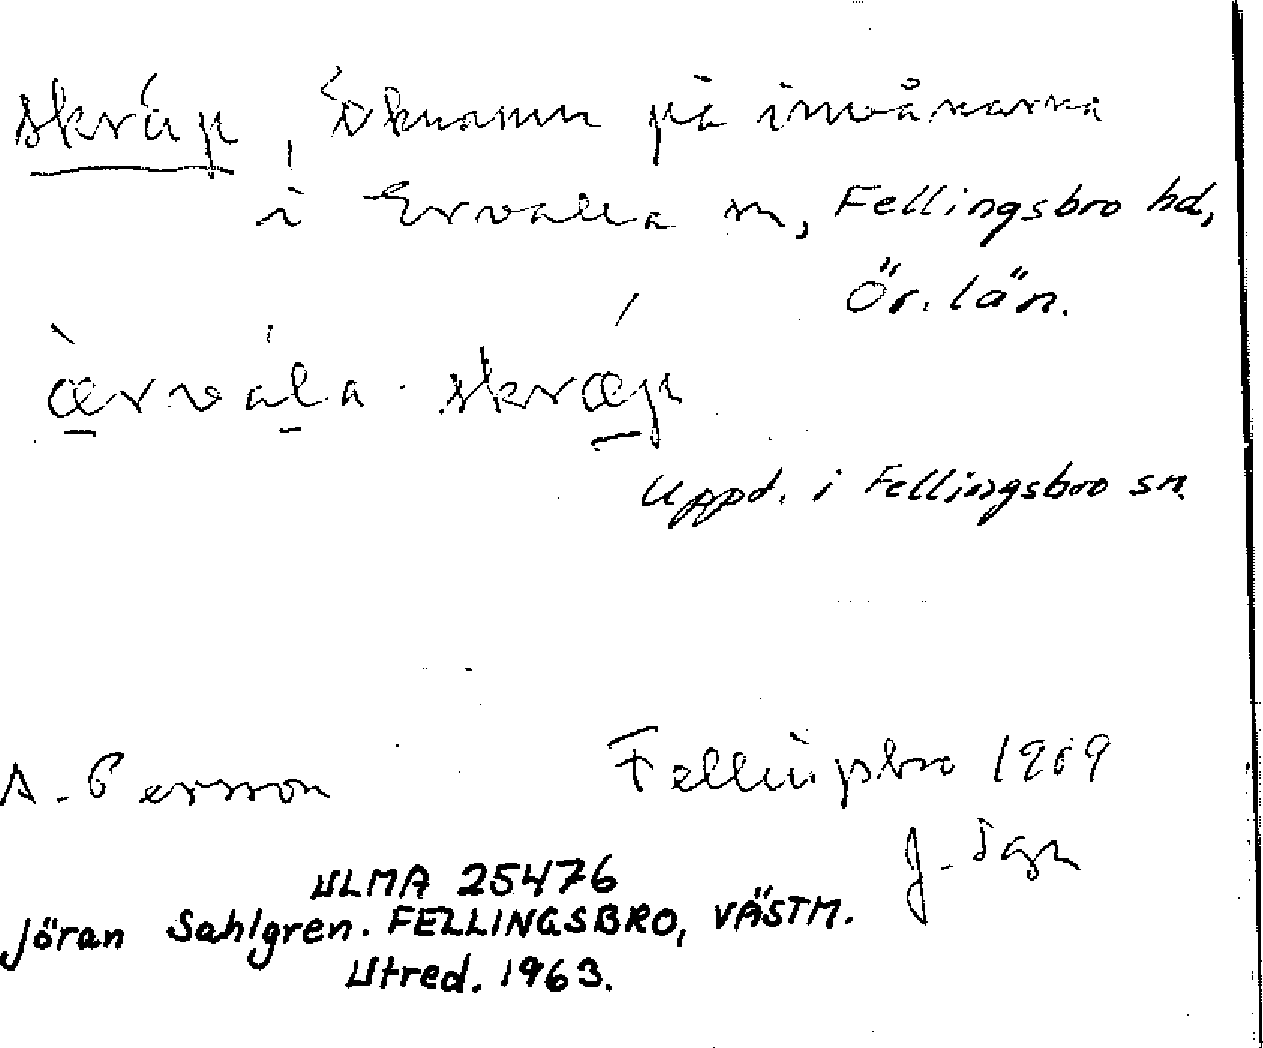 skräp, Öknamn på invånarna
i Ervalla sn, Fellingsbro hd,
Ör. län.
ærvála-skræp
Uppd. i Fellingsbro sn.
A. Persson Fellingsbro 1909
J. Sgn
ULMA 25476
Jöran Sahlgren. FELLINGSBRO, VÄSTM.
Utred. 1963.